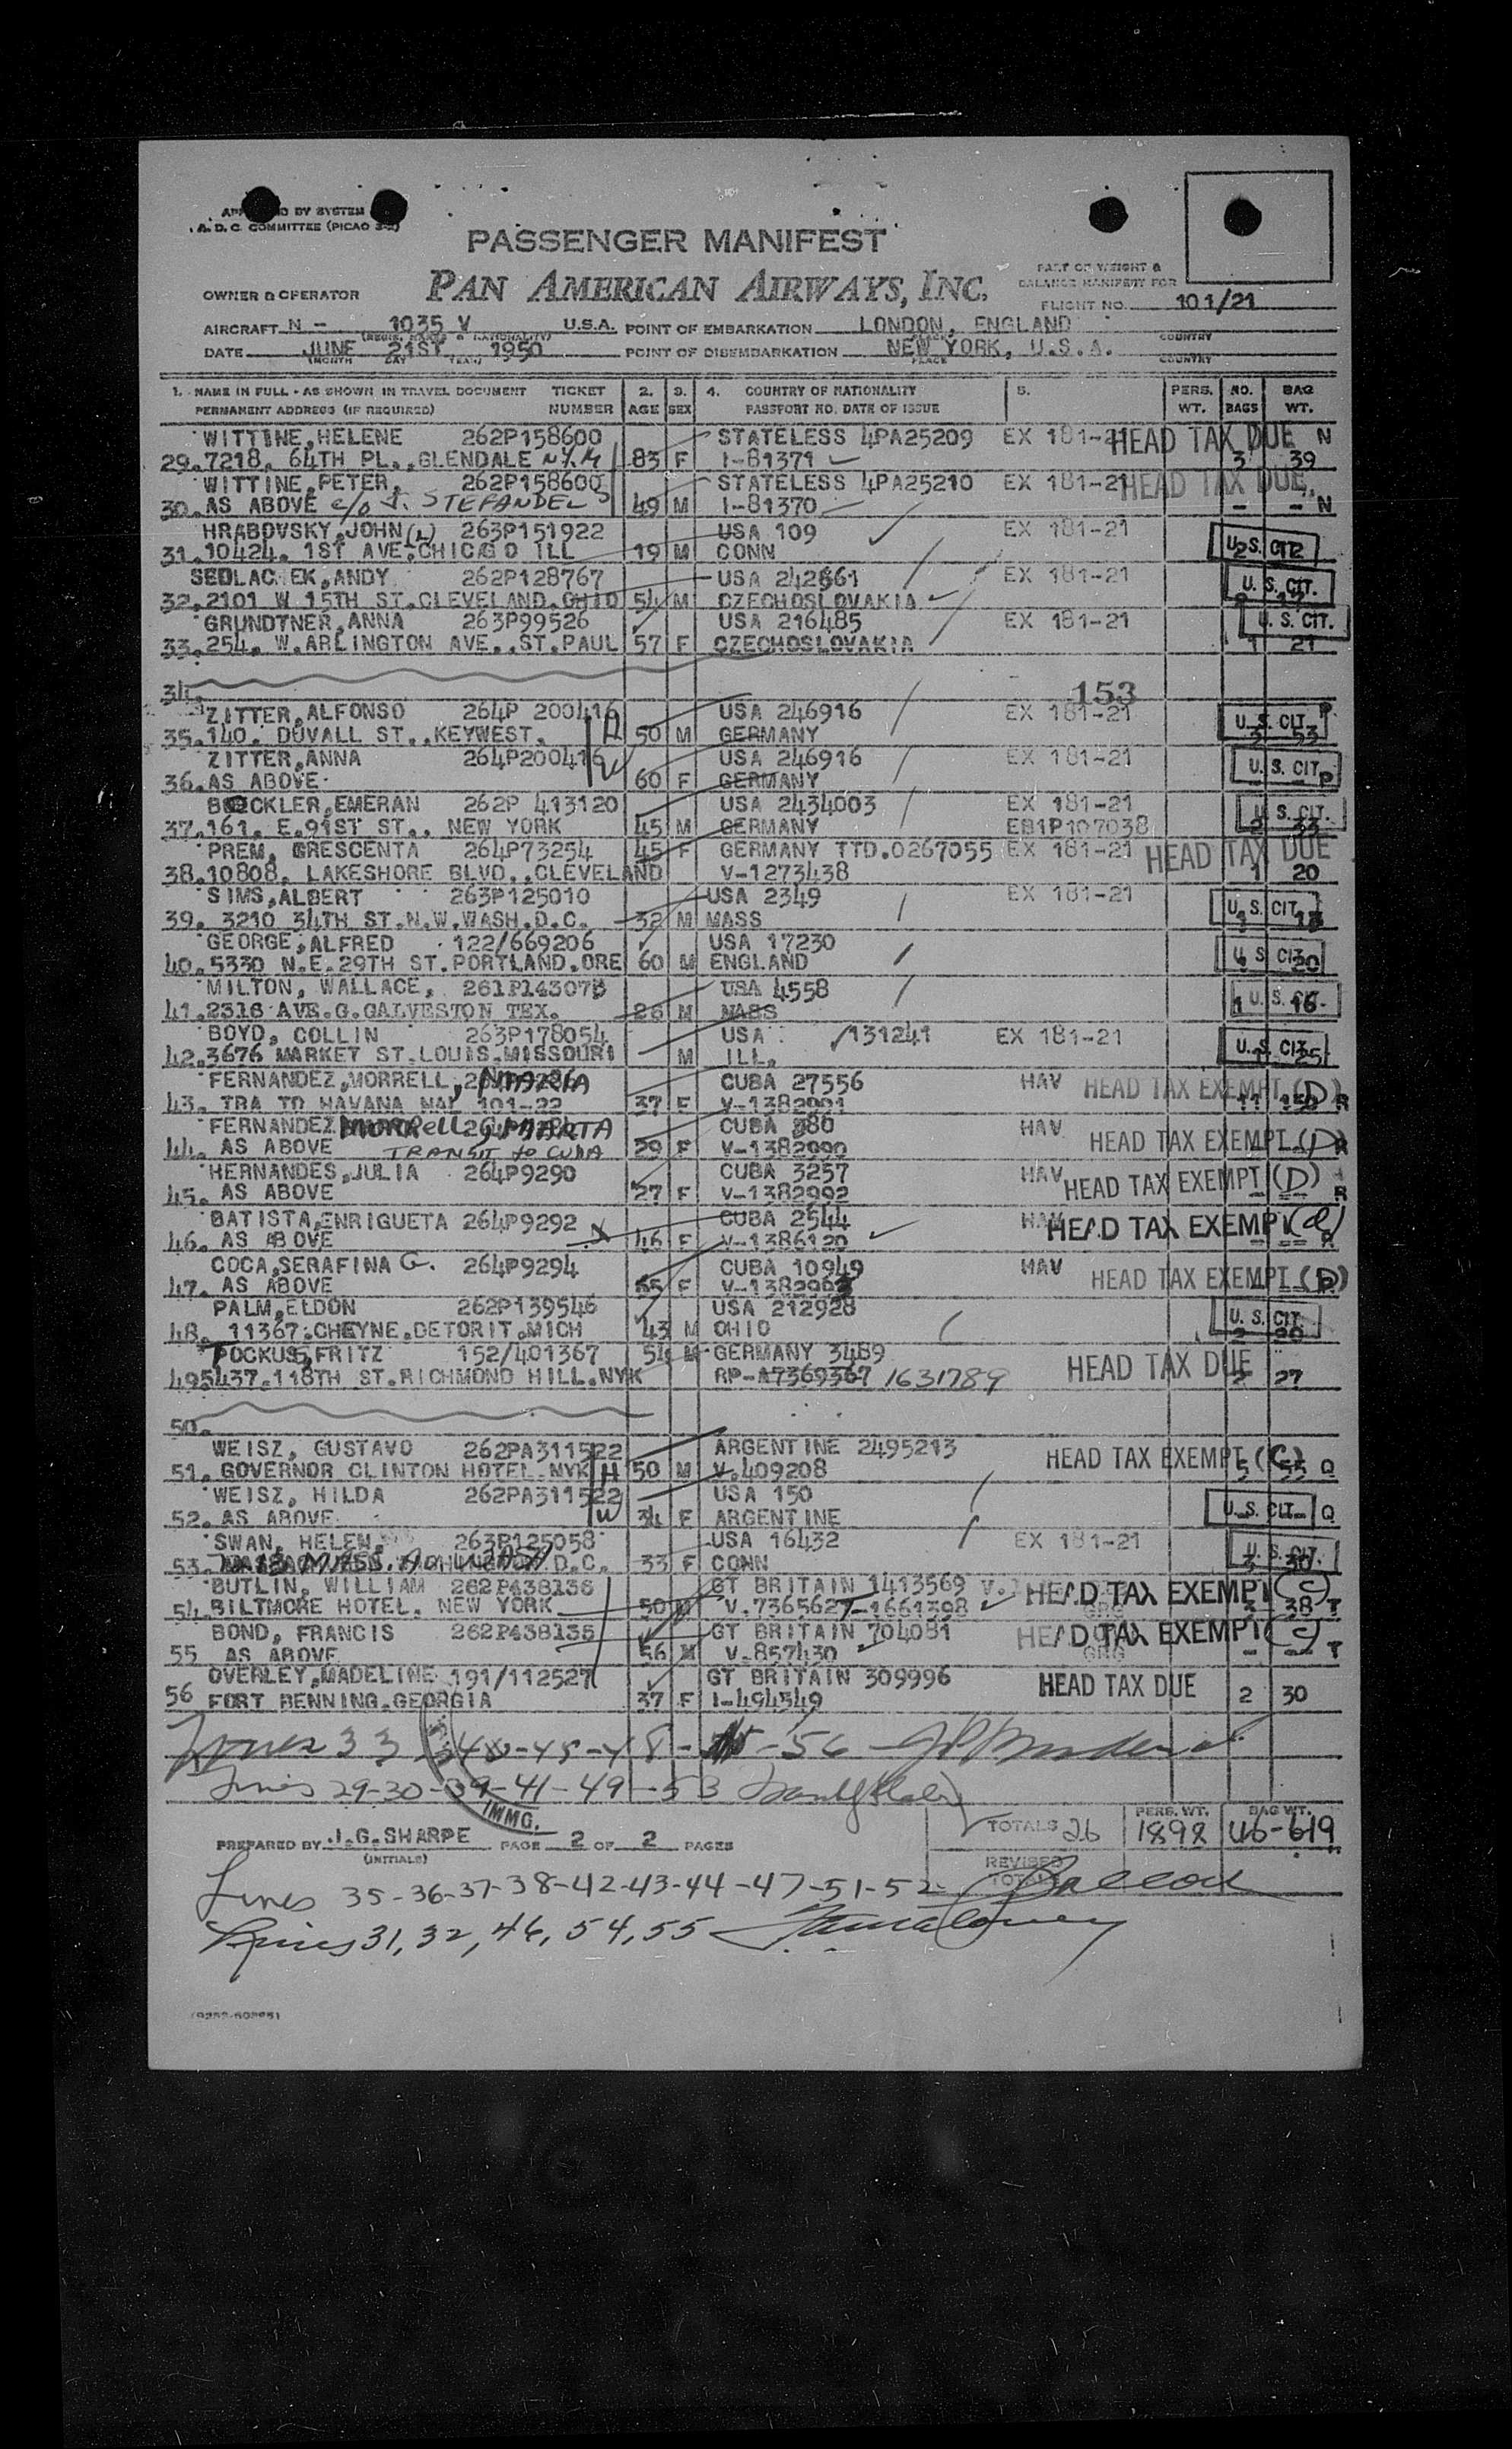 BY SYSTEM
A.D.C. COMMITTEE (PICAO
PASSENGER MANIFEST
PART OF WEIGHT &
BALANCE MANIFEST FOR
OWNER & OPERATOR PAN AMERICAN AIRWAYS, INC.
FLIGHT NO. 101/21
AIRCRAFT N - 1035 V U.S.A. POINT OF EMBARKATION LONDON, ENGLAND COUNTRY
DATE JUNE 21ST 1950 POINT OF DISEMBARKATION NEW YORK, U.S.A. COUNTRY
(MONTH DAY YEAR) PLACE
1. NAME IN FULL - AS SHOWN IN TRAVEL DOCUMENT TICKET 2. 3. 4. COUNTRY OF NATIONALITY 5. PERS. NO. BAG
PERMANENT ADDRESS (IF REQUIRED) NUMBER AGE SEX PASSPORT NO. DATE OF ISSUE WT. BAGS WT.
WITTINE, HELENE 262P158600 STATELESS 4PA25209 EX 181-21 HEAD TAX DUE N
29. 7218. 64TH PL., GLENDALE N.Y. 83 F I-81371 3 39
WITTINE, PETER. 262P158600 STATELESS 4PA25210 EX 181-21 HEAD TAX DUE.
30. AS ABOVE c/o J. STEFANDEL 49 M I-81370 - - N
HRABOVSKY, JOHN (L) 263P151922 USA 109 EX 181-21
31. 10424. 1ST AVE. CHICAGO ILL 19 M CONN U.S. CIT.
SEDLACEK, ANDY 262P128767 USA 242861 EX 181-21
32. 2101 W 15TH ST. CLEVELAND. OHIO 54 M CZECHOSLOVAKIA U. S. CIT.
GRUNDTNER, ANNA 263P99526 USA 216485 EX 181-21 U. S. CIT.
33. 254. W. ARLINGTON AVE., ST. PAUL 57 F CZECHOSLOVAKIA 1 21
34. 153
ZITTER, ALFONSO 264P 200416 USA 246916 EX 181-21 P
35. 140. DUVALL ST., KEYWEST. H 50 M GERMANY U. S. CIT. 3 53
ZITTER, ANNA 264P200416 USA 246916 EX 181-21
36. AS ABOVE W 60 F GERMANY U. S. CIT. P
BOCKLER, EMERAN 262P 413120 USA 2434003 EX 181-21 U. S. CIT.
37. 161. E. 91ST ST., NEW YORK 45 M GERMANY EB1P107038 2 33
PREM, CRESCENTA 264P73254 45 F GERMANY TTD.0267055 EX 181-21 HEAD TAX DUE
38. 10808. LAKESHORE BLVD., CLEVELAND V-1273438 1 20
SIMS, ALBERT 263P125010 USA 2349 EX 181-21
39. 3210 34TH ST. N.W. WASH. D.C. 32 M MASS U. S. CIT.
GEORGE, ALFRED 122/669206 USA 17230
40. 5330 N.E. 29TH ST. PORTLAND, ORE 60 M ENGLAND U. S. CIT.
MILTON, WALLACE, 261P143078 USA 4558
41. 2316 AVE. G. GALVESTON TEX. 26 M MASS U. S. CIT. 1 16
BOYD, COLLIN 263P178054 USA 131241 EX 181-21
42. 3676 MARKET ST. LOUIS. MISSOURI M ILL. U. S. CIT. 25
FERNANDEZ, MORRELL, MARIA CUBA 27556 HAV HEAD TAX EXEMPT (D)
43. TRA TO HAVANA NAL 101-22 37 F V-1382991 R
FERNANDEZ MORRELL, MARTA CUBA 380 HAV HEAD TAX EXEMPT (D)
44. AS ABOVE TRANSIT to CUBA 29 F V-1382990 R
HERNANDES, JULIA 264P9290 CUBA 3257 HAV HEAD TAX EXEMPT (D)
45. AS ABOVE 27 F V-1382992 R
BATISTA, ENRIGUETA 264P9292 CUBA 2544 HAV HEAD TAX EXEMPT (d)
46. AS ABOVE 46 F V-1386120
COCA, SERAFINA G. 264P9294 CUBA 10949 HAV HEAD TAX EXEMPT (D)
47. AS ABOVE 55 F V-1382993
PALM, ELDON 262P139546 USA 212928
48. 11367. CHEYNE. DETORIT. MICH 43 M OHIO U. S. CIT. 2 20
POCKUS, FRITZ 152/401367 54 M GERMANY 3489 HEAD TAX DUE
49 5437. 118TH ST. RICHMOND HILL. NYK RP-A7369367 1631789 2 27
50.
WEISZ, GUSTAVO 262PA311522 ARGENTINE 2495213 HEAD TAX EXEMPT (C)
51. GOVERNOR CLINTON HOTEL. NYK H 50 M V.409208 5 55 Q
WEISZ, HILDA 262PA311522 USA 150
52. AS ABOVE. W 34 F ARGENTINE U. S. CIT. Q
SWAN, HELEN, 263P125058 USA 16432 EX 181-21 U. S. CIT.
53. D.C. 33 F CONN 30
BUTLIN, WILLIAM 262P438136 GT BRITAIN 1413569 V. HEAD TAX EXEMPT (C)
54. BILTMORE HOTEL, NEW YORK 50 M V.736562 T-1661398 3 38 T
BOND, FRANCIS 262P438135 GT BRITAIN 704081 HEAD TAX EXEMPT (C)
55 AS ABOVE 56 M V.857430 GRG - - T
OVERLEY, MADELINE 191/112527 GT BRITAIN 309996 HEAD TAX DUE
56 FORT BENNING. GEORGIA 37 F I-494549 2 30
Lines 33 40-45-48 - 56
Lines 29-30-39-41-49-53
IMMG.
PREPARED BY J.G. SHARPE PAGE 2 OF 2 PAGES TOTALS 26 PERS. WT. 1898 BAG WT. 46-619
(INITIALS) REVISED TOTALS
Lines 35-36-37-38-42-43-44-47-51-52
Lines 31, 32, 46, 54, 55